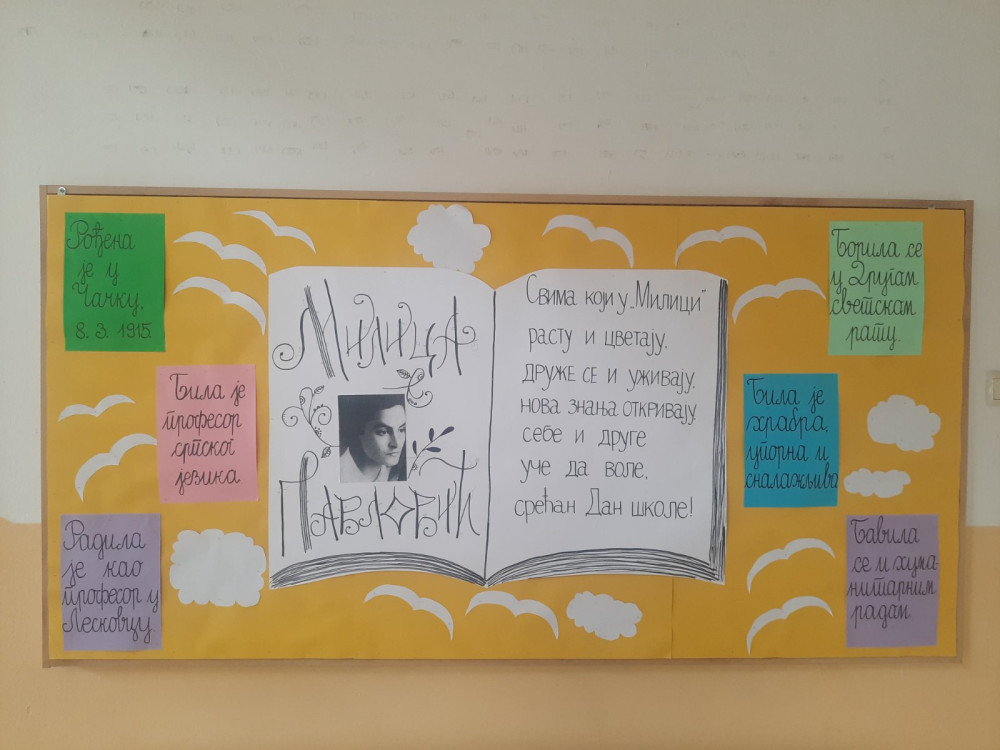 Рођена
је у
Чачку,
8. 3. 1915.
Била је
професор
српског
језика
Радила
је као
професор у
Лесковцу.
МИЛИЦА
ПАВЛОВИЋ
Свима који у „Милици“
расту и цветају,
друже се и уживају,
нова знања откривају,
себе и друге
уче да воле,
срећан Дан школе!
Борила се
у Другом
светском
рату.
Била је
храбра,
упорна и
сналажљива
Бавила
се и хума-
нитарним
радом.